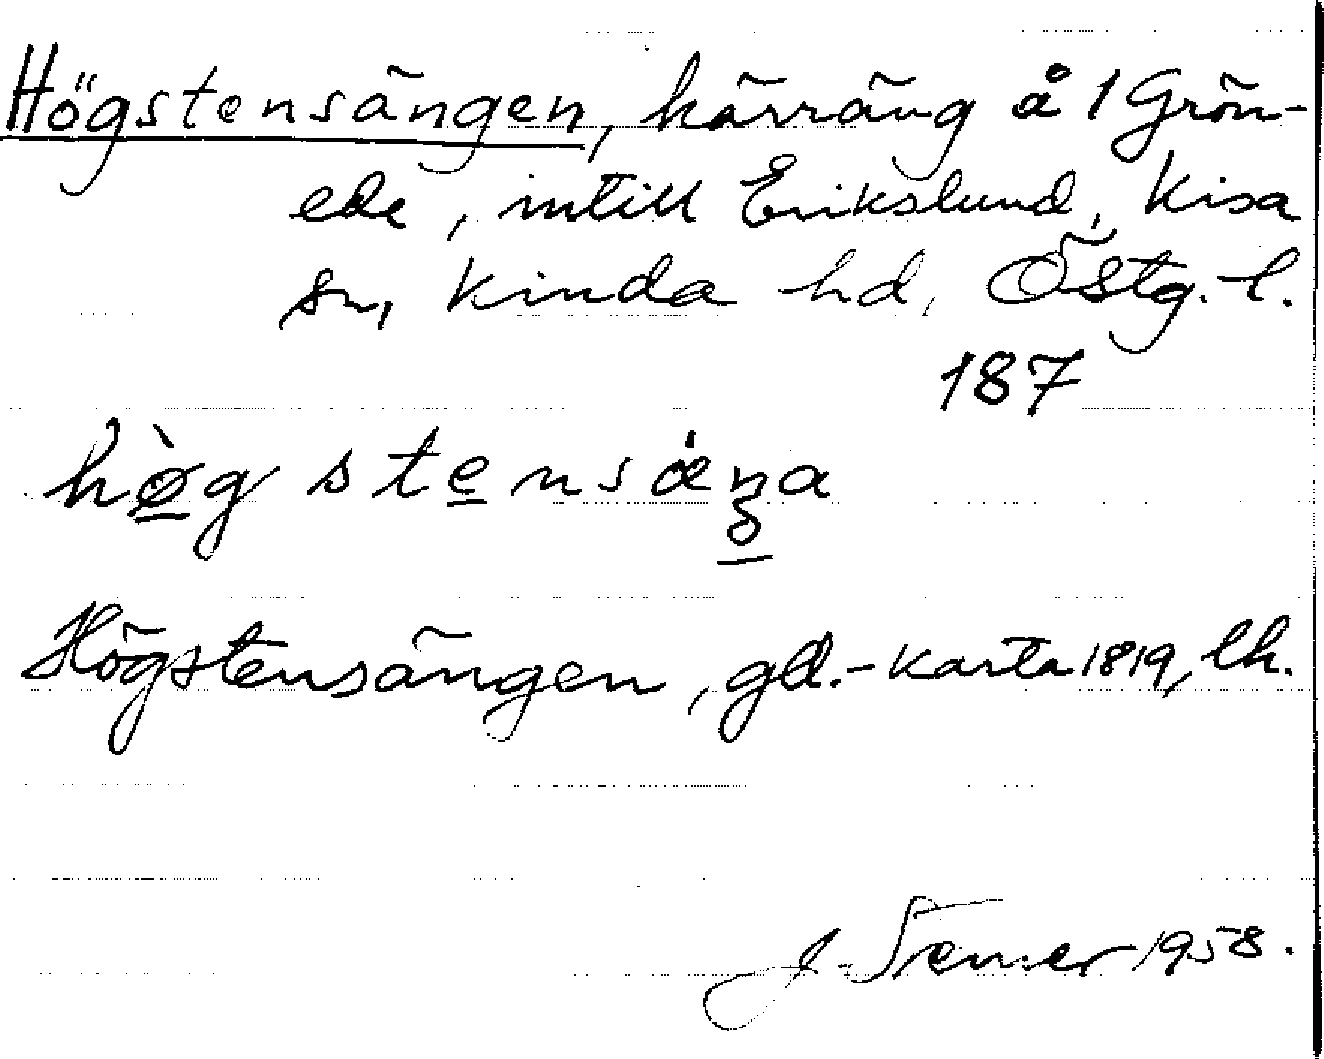 Högstensängen, kärräng å 1 Grön-
ede, intill Erikslund, Kisa
sn, Kinda hd, Östg. l.
187
hø̀g stensæŋa
Högstensängen, gll.-karta 1819, lh.
J.
1958.